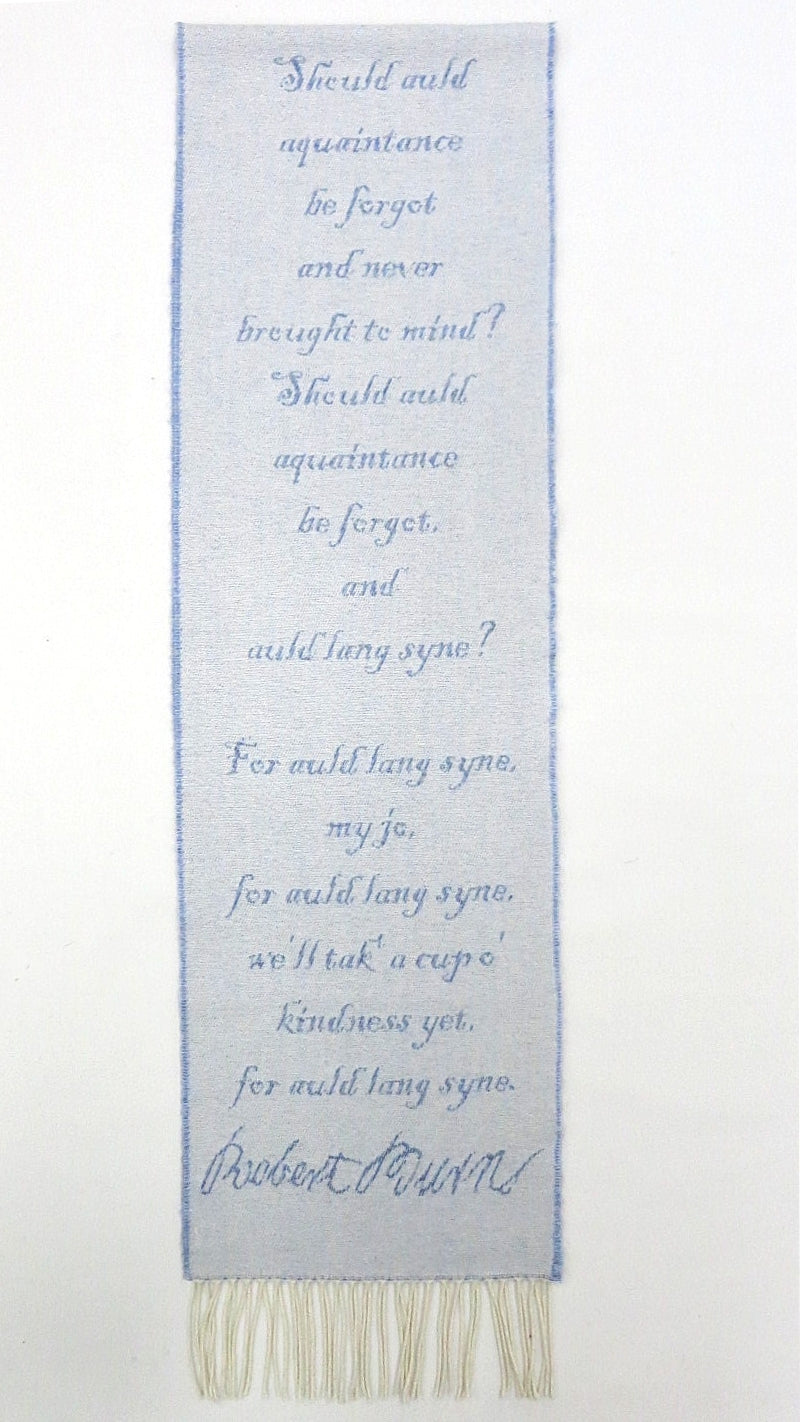 Should auld
aquaintance
be forgot
and never
brought to mind?
Should auld
aquaintance
be forgot,
and
auld lang syne?
For auld lang syne,
my jo,
for auld lang syne,
we'll tak' a cup o'
kindness yet,
for auld lang syne.
Robert Burns